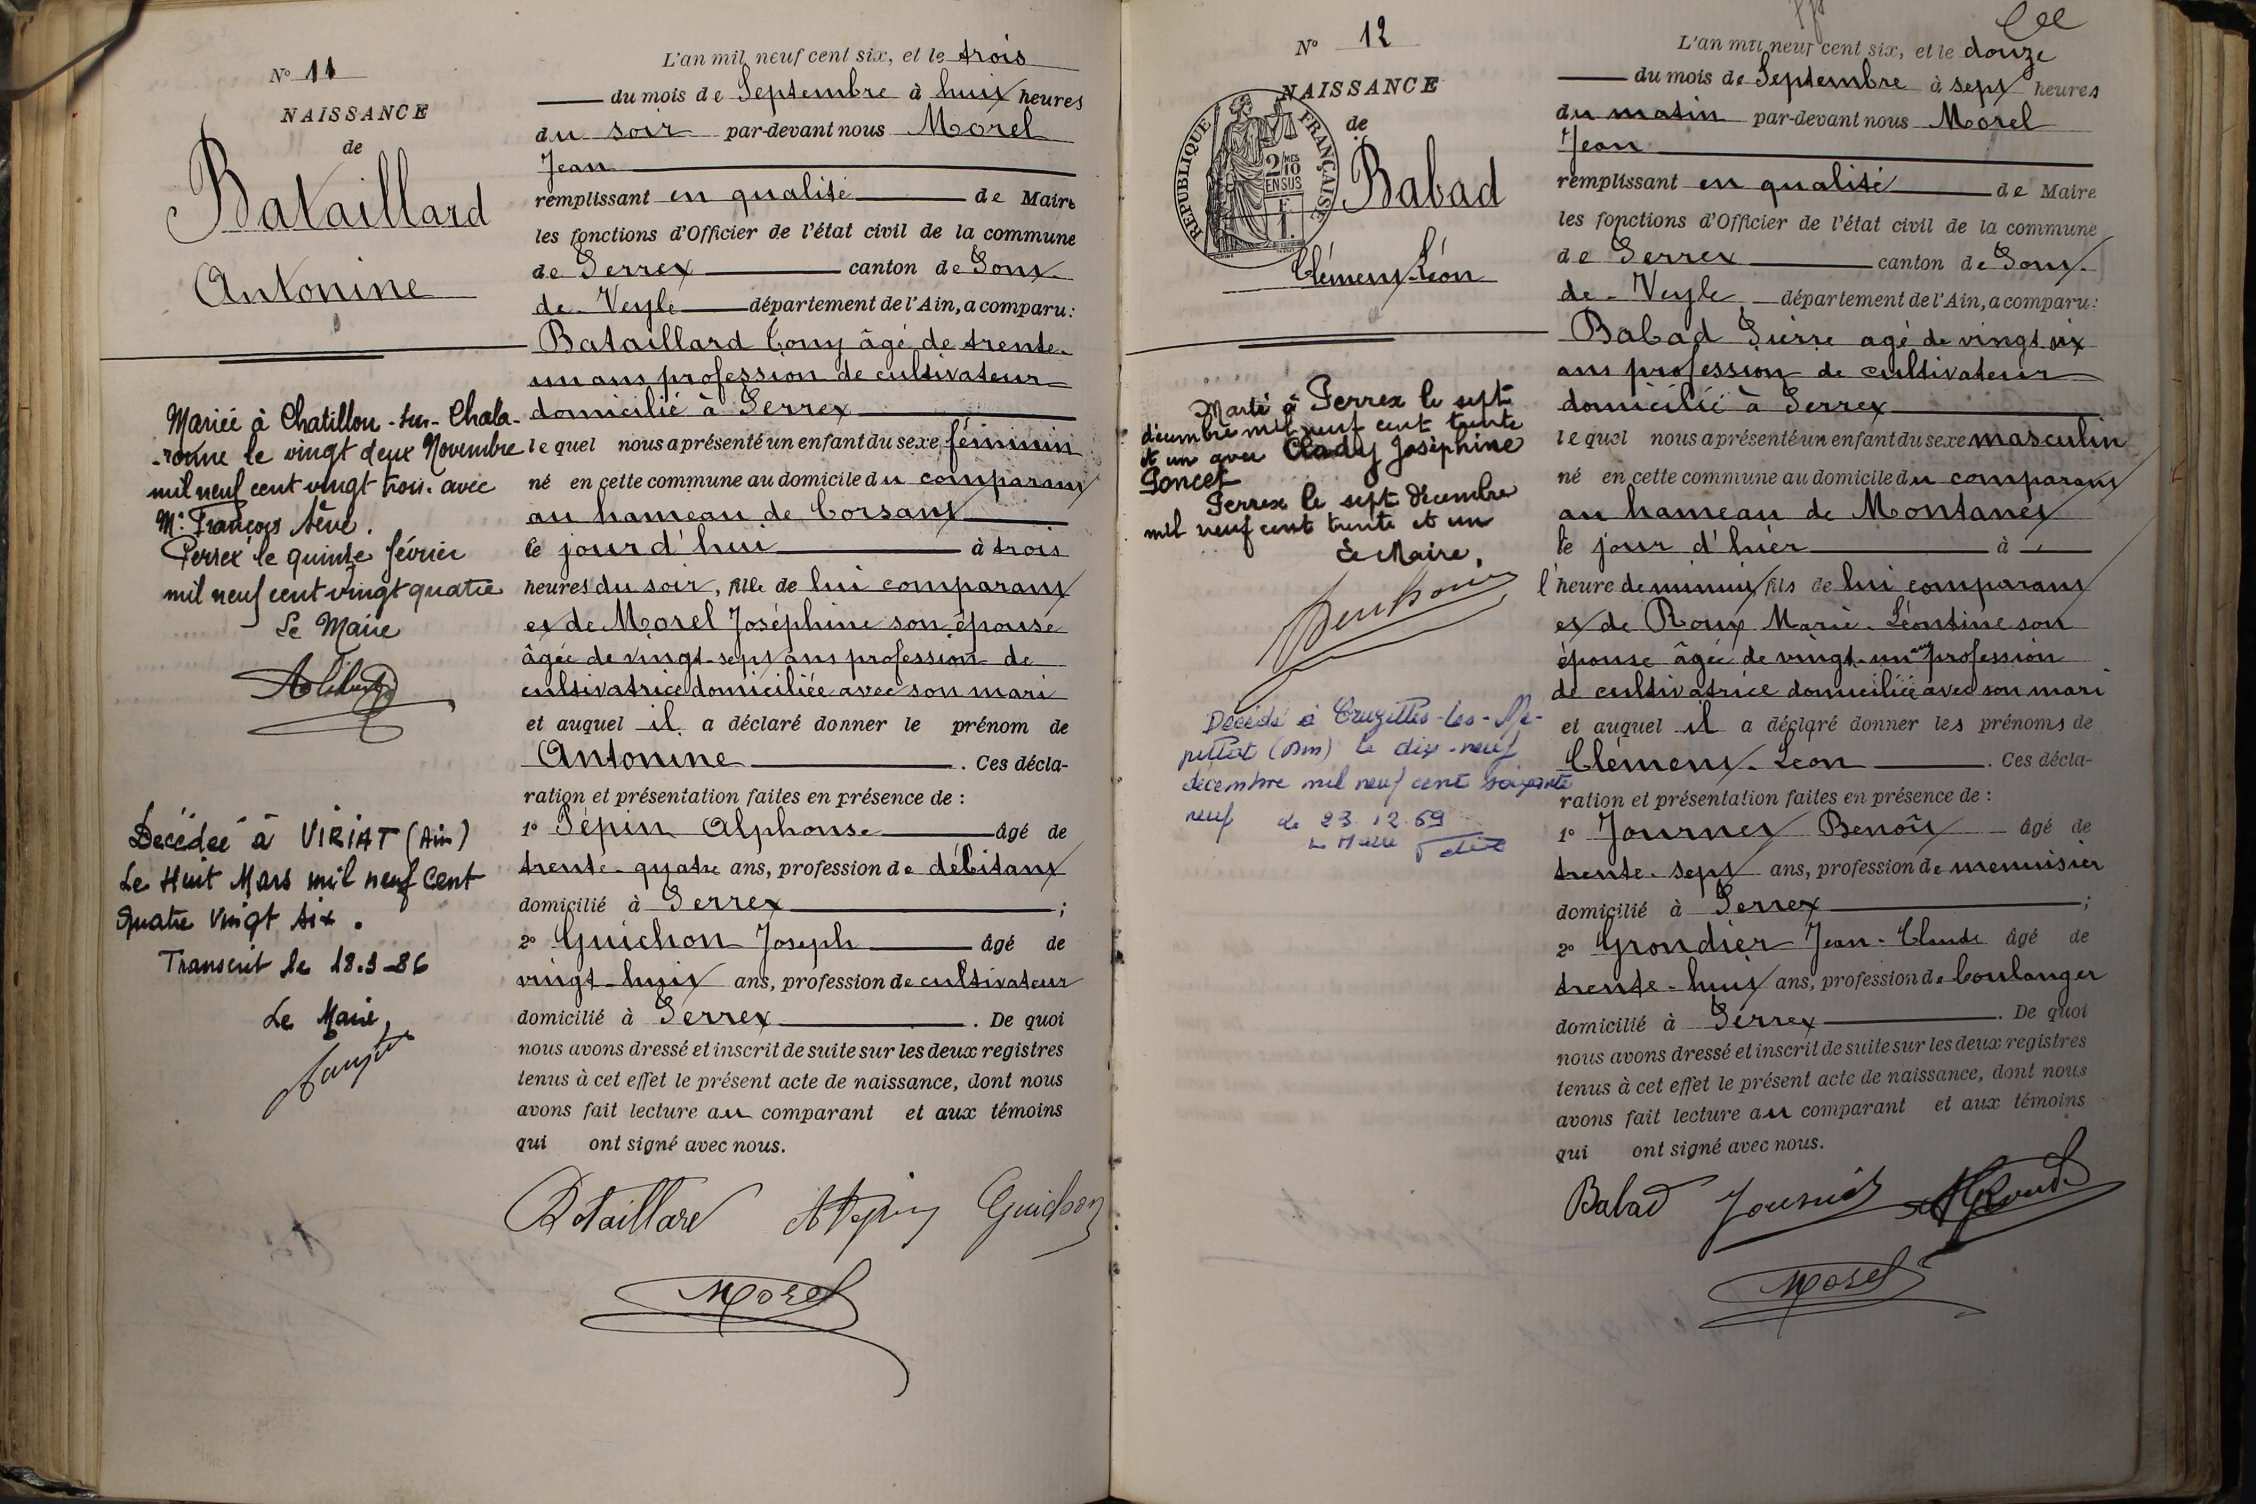 Nº 11
NAISSANCE
de
Bataillard
Antonine
Mariée à Chatillon-sur-Chala-
-ronne le vingt deux Novembre
mil neuf cent vingt trois avec
Mr François Sève.
Perrex le quinze février
mil neuf cent vingt quatre
Le Maire
Décédée à VIRIAT (Ain)
Le Huit Mars mil neuf Cent
quatre vingt six.
Transcrit le 18.3-86
Le Maire,
L'an mil neuf cent six, et le trois
du mois de Septembre à huit heures
du soir par-devant nous Morel
Jean
remplissant en qualité de Maire
les fonctions d'Officier de l'état civil de la commune
de Perrex canton de Pont-
de-Veyle département de l'Ain, a comparu:
Bataillard Tony âgé de trente-
un ans profession de cultivateur
domicilié à Perrex
lequel nous a présenté un enfant du sexe féminin
né en cette commune au domicile du comparant
au hameau de Corsant
le jour d'hui à trois
heures du soir, fille de lui comparant
et de Morel Joséphine son épouse
âgée de vingt-sept ans profession de
cultivatrice domiciliée avec son mari
et auquel il a déclaré donner le prénom de
Antonine. Ces décla-
ration et présentation faites en présence de :
1º Pépin Alphonse âgé de
trente-quatre ans, profession de débitant
domicilié à Perrex ;
2º Guichon Joseph âgé de
vingt-huit ans, profession de cultivateur
domicilié à Perrex. De quoi
nous avons dressé et inscrit de suite sur les deux registres
tenus à cet effet le présent acte de naissance, dont nous
avons fait lecture au comparant et aux témoins
qui ont signé avec nous.
Bataillard A Pépin Guichon
Morel
Nº 12
NAISSANCE
de
REPUBLIQUE FRANÇAISE
2/10 MES
EN SUS
F
1.
Babad
Clément-Léon
Marié à Perrex le sept
décembre mil neuf cent trente
et un avec Clady Joséphine
Poncet
Perrex le sept décembre
mil neuf cent trente et un
Le Maire,
Décédé à Cruzilles-les-Mé-
pillat (Ain) le dix-neuf
décembre mil neuf cent soixante
neuf le 23.12.69
Le Maire
L'an mil neuf cent six, et le douze
du mois de Septembre à sept heures
du matin par-devant nous Morel
Jean
remplissant en qualité de Maire
les fonctions d'Officier de l'état civil de la commune
de Perrex canton de Pont-
de-Veyle département de l'Ain, a comparu:
Babad Pierre agé de vingt six
ans profession de cultivateur
domicilié à Perrex
lequel nous a présenté un enfant du sexe masculin
né en cette commune au domicile du comparant
au hameau de Montanet
le jour d'hier à
l'heure de minuit fils de lui comparant
et de Roux Marie-Léontine son
épouse âgée de vingt-un ans profession
de cultivatrice domiciliée avec son mari
et auquel il a déclaré donner les prénoms de
Clément-Léon. Ces décla-
ration et présentation faites en présence de :
1º Journet Benoît âgé de
trente-sept ans, profession de menuisier
domicilié à Perrex ;
2º Grondier Jean-Claude âgé de
trente-huit ans, profession de boulanger
domicilié à Perrex. De quoi
nous avons dressé et inscrit de suite sur les deux registres
tenus à cet effet le présent acte de naissance, dont nous
avons fait lecture au comparant et aux témoins
qui ont signé avec nous.
Babad Journet
Morel